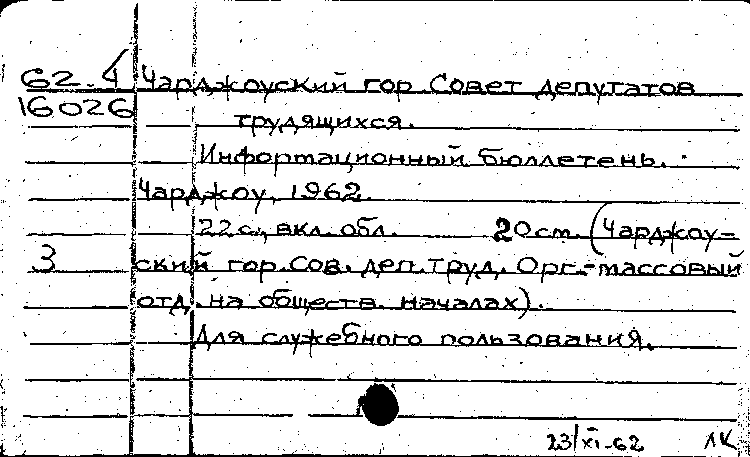 62.4 Чарджоуский гор. Совет депутатов
16026 трудящихся.
Информационный бюллетень.
Чарджоу, 1962.
22 с., вкл. обл. 20 см. (Чарджоу-
3 ский гор. Сов. деп. труд. Орг.-массовый
отд. на обществ. началах).
Для служебного пользования.
23/XI-62 ЛК